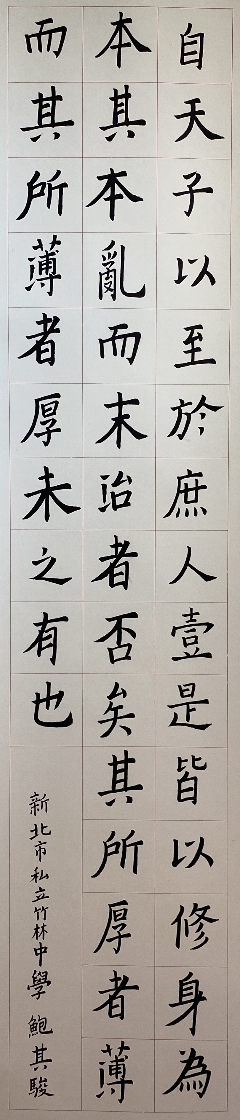 自天子以至於庶人壹是皆以修身為
本其本亂而末治者否矣其所厚者薄
而其所薄者厚未之有也
新北市私立竹林中學 鮑其駿